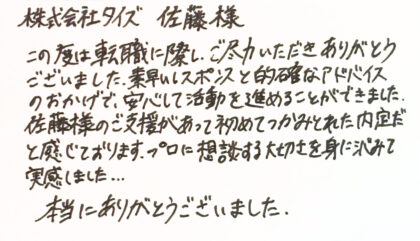 株式会社タイズ 佐藤様
この度は転職に際し、ご尽力いただきありがとう
ございました。素早いレスポンスと的確なアドバイス
のおかげで、安心して活動を進めることができました。
佐藤様のご支援があって初めてつかみとれた内定だ
と感じております。プロに想談する大切さを身に沁みて
実感しました…
本当にありがとうございました.